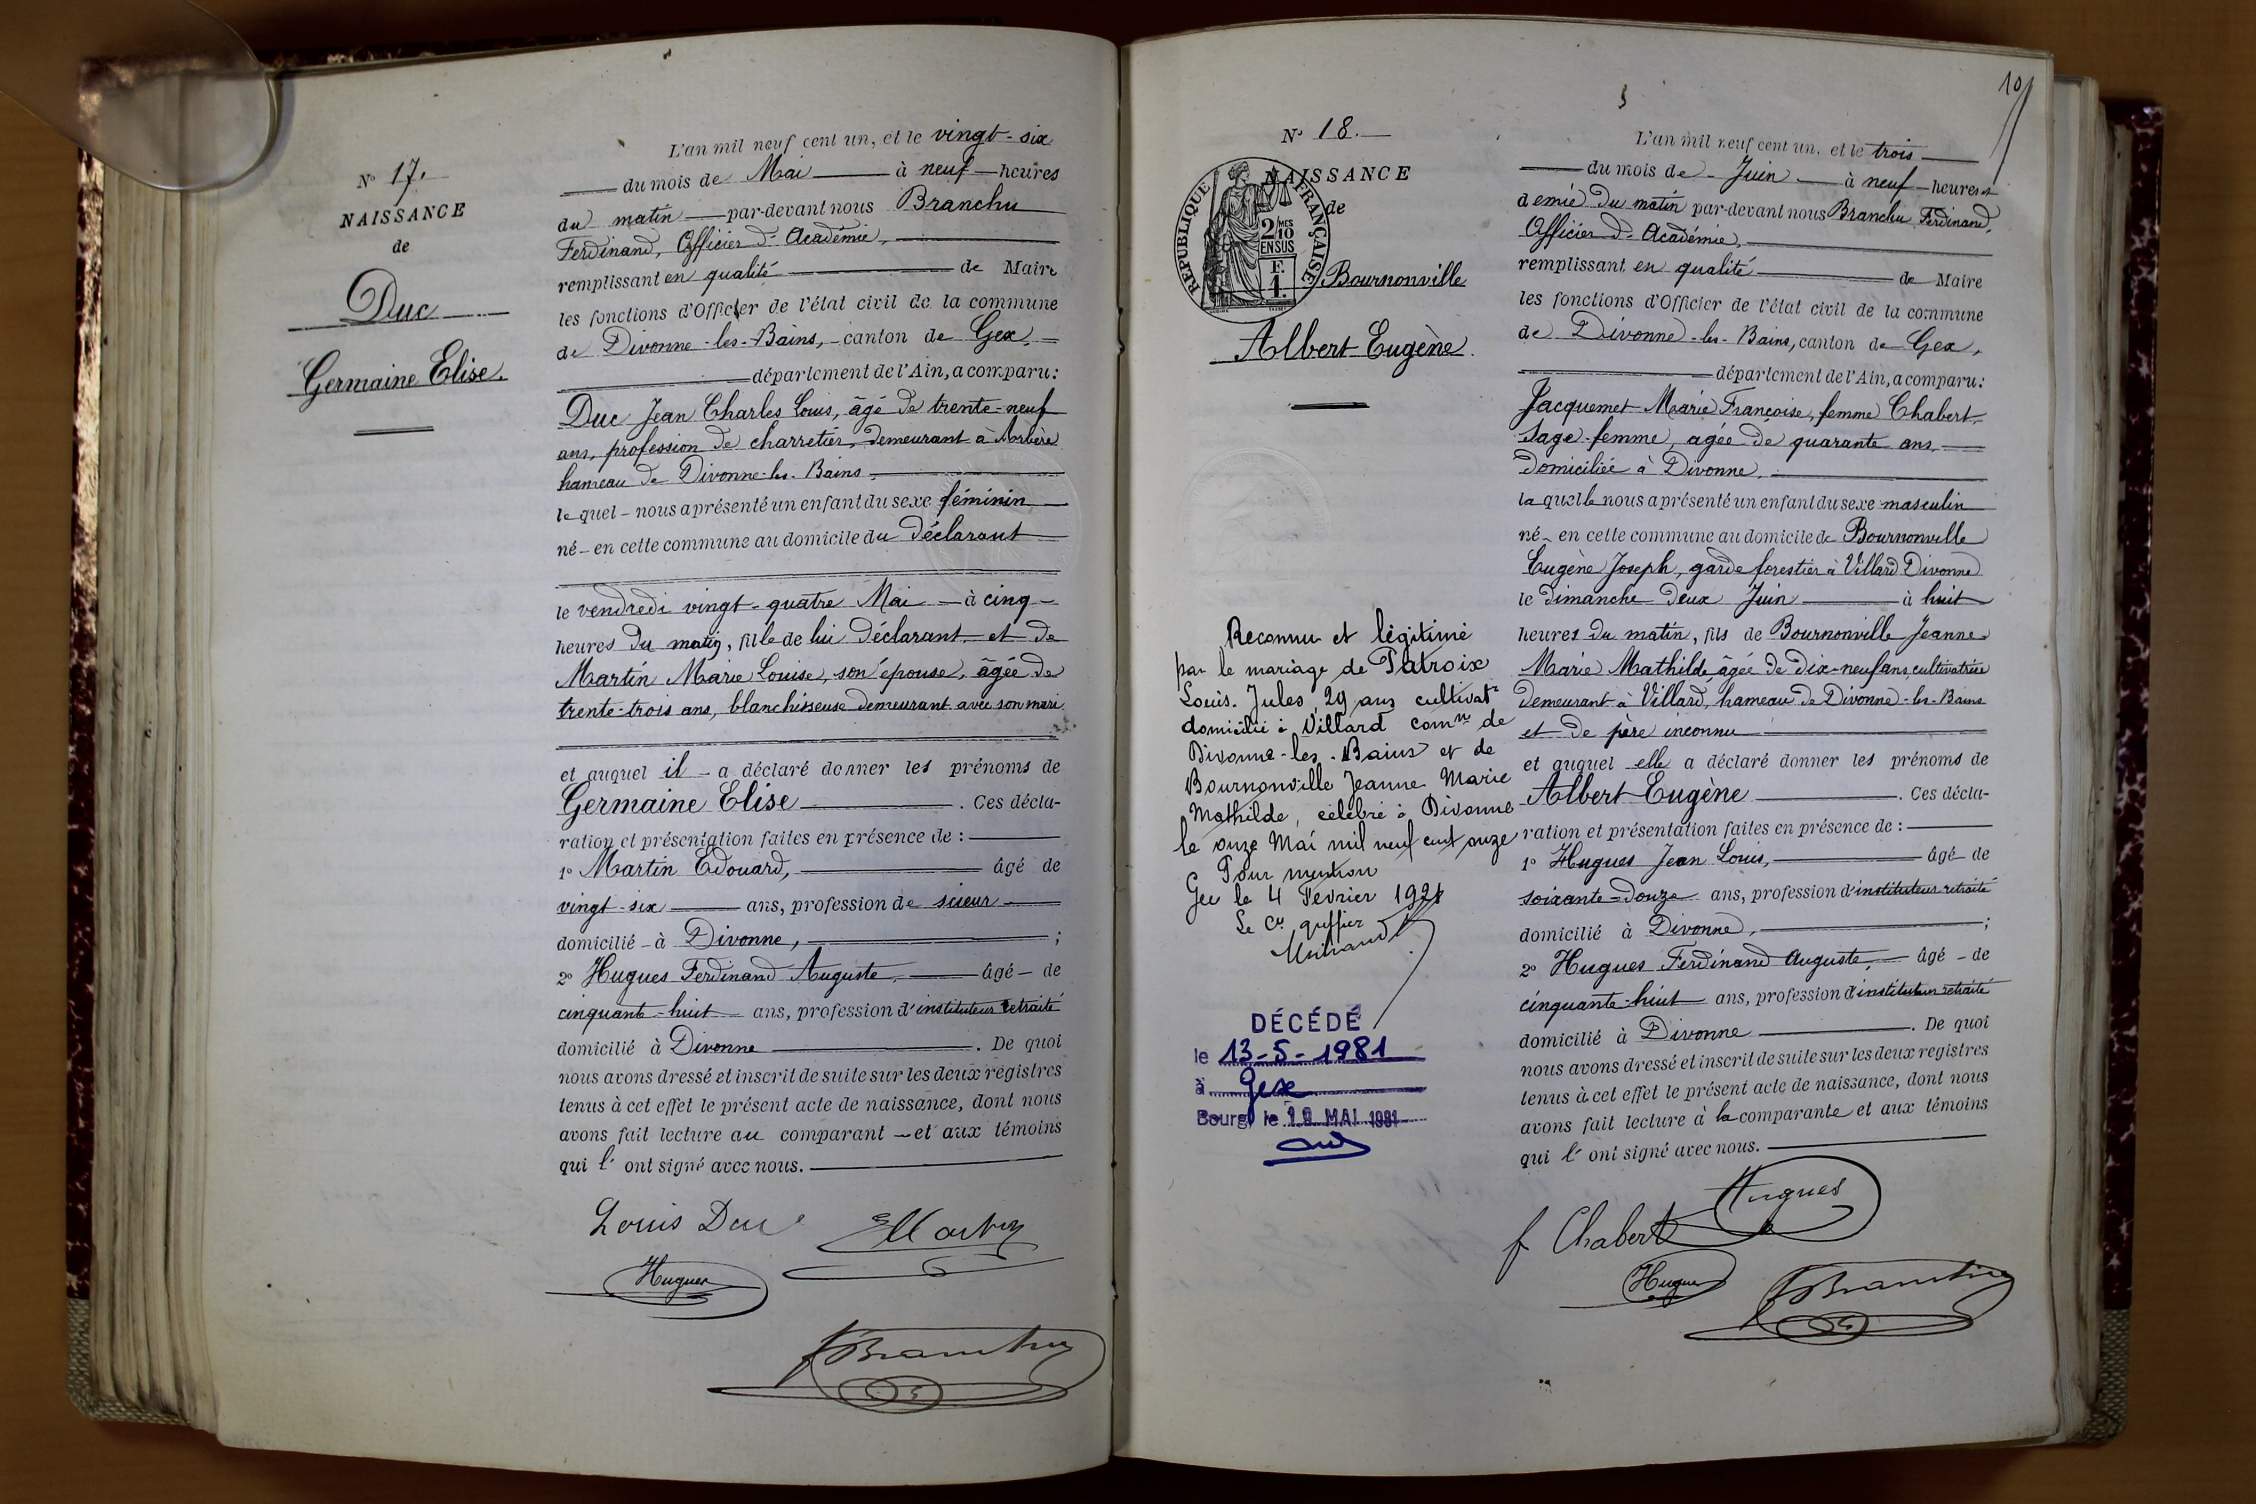 N° 17.
NAISSANCE
de
Duc
Germaine Elise.
L'an mil neuf cent un, et le vingt-six
du mois de Mai à neuf heures
du matin par-devant nous Branchu
Ferdinand, Officier d'Académie,
remplissant en qualité de Maire
les fonctions d'Officier de l'état civil de la commune
de Divonne-les-Bains, canton de Gex,
département de l'Ain, a comparu:
Duc Jean Charles Louis, âgé de trente-neuf
ans, profession de charretier, demeurant à Arbère
hameau de Divonne-les-Bains,
le quel nous a présenté un enfant du sexe féminin
né en cette commune au domicile du déclarant
le vendredi vingt-quatre Mai à cinq
heures du matin, fille de lui déclarant et de
Martin Marie Louise, son épouse, âgée de
trente-trois ans, blanchisseuse demeurant avec son mari
et auquel il a déclaré donner les prénoms de
Germaine Elise. Ces décla-
ration et présentation faites en présence de :
1° Martin Edouard, âgé de
vingt-six ans, profession de scieur
domicilié à Divonne, ;
2° Hugues Ferdinand Auguste, âgé de
cinquante-huit ans, profession d'instituteur retraité
domicilié à Divonne. De quoi
nous avons dressé et inscrit de suite sur les deux registres
tenus à cet effet le présent acte de naissance, dont nous
avons fait lecture au comparant et aux témoins
qui l' ont signé avec nous.
Louis Duc
E Martin
Hugues
F Branchu
10
N° 18.
NAISSANCE
de
RÉPUBLIQUE FRANÇAISE
2 MES
10
EN SUS
F.
1.
Bournonville
Albert Eugène.
L'an mil neuf cent un, et le trois
du mois de Juin à neuf heures et
demie du matin par-devant nous Branchu Ferdinand,
Officier d'Académie,
remplissant en qualité de Maire
les fonctions d'Officier de l'état civil de la commune
de Divonne-les-Bains, canton de Gex,
département de l'Ain, a comparu:
Jacquemet Marie Françoise, femme Chabert,
Sage-femme, agée de quarante ans,
domiciliée à Divonne,
la quelle nous a présenté un enfant du sexe masculin
né en cette commune au domicile de Bournonville
Eugène Joseph, garde forestier à Villard Divonne
le dimanche deux Juin à huit
heures du matin, fils de Bournonville Jeanne
Marie Mathilde âgée de dix-neuf ans, cultivatrice
demeurant à Villard, hameau de Divonne-les-Bains
et de père inconnu
et auquel elle a déclaré donner les prénoms de
Albert Eugène. Ces décla-
ration et présentation faites en présence de :
1° Hugues Jean Louis, âgé de
soixante-douze ans, profession d'instituteur retraité
domicilié à Divonne, ;
2° Hugues Ferdinand Auguste, âgé de
cinquante-huit ans, profession d'instituteur retraité
domicilié à Divonne. De quoi
nous avons dressé et inscrit de suite sur les deux registres
tenus à cet effet le présent acte de naissance, dont nous
avons fait lecture à la comparante et aux témoins
qui l' ont signé avec nous.
f Chabert
Hugues
Hugues
F Branchu
Reconnu et légitimé
par le mariage de Patroix
Louis Jules 29 ans cultivatr
domicilié à Villard comne de
Divonne-les-Bains et de
Bournonville Jeanne Marie
Mathilde, célébré à Divonne
le onze Mai mil neuf cent onze
Pour mention
Gex le 4 Fevrier 1921
Le Cis greffier
DÉCÉDÉ
le 13-5-1981
à Gex
Bourg, le 19 MAI 1981